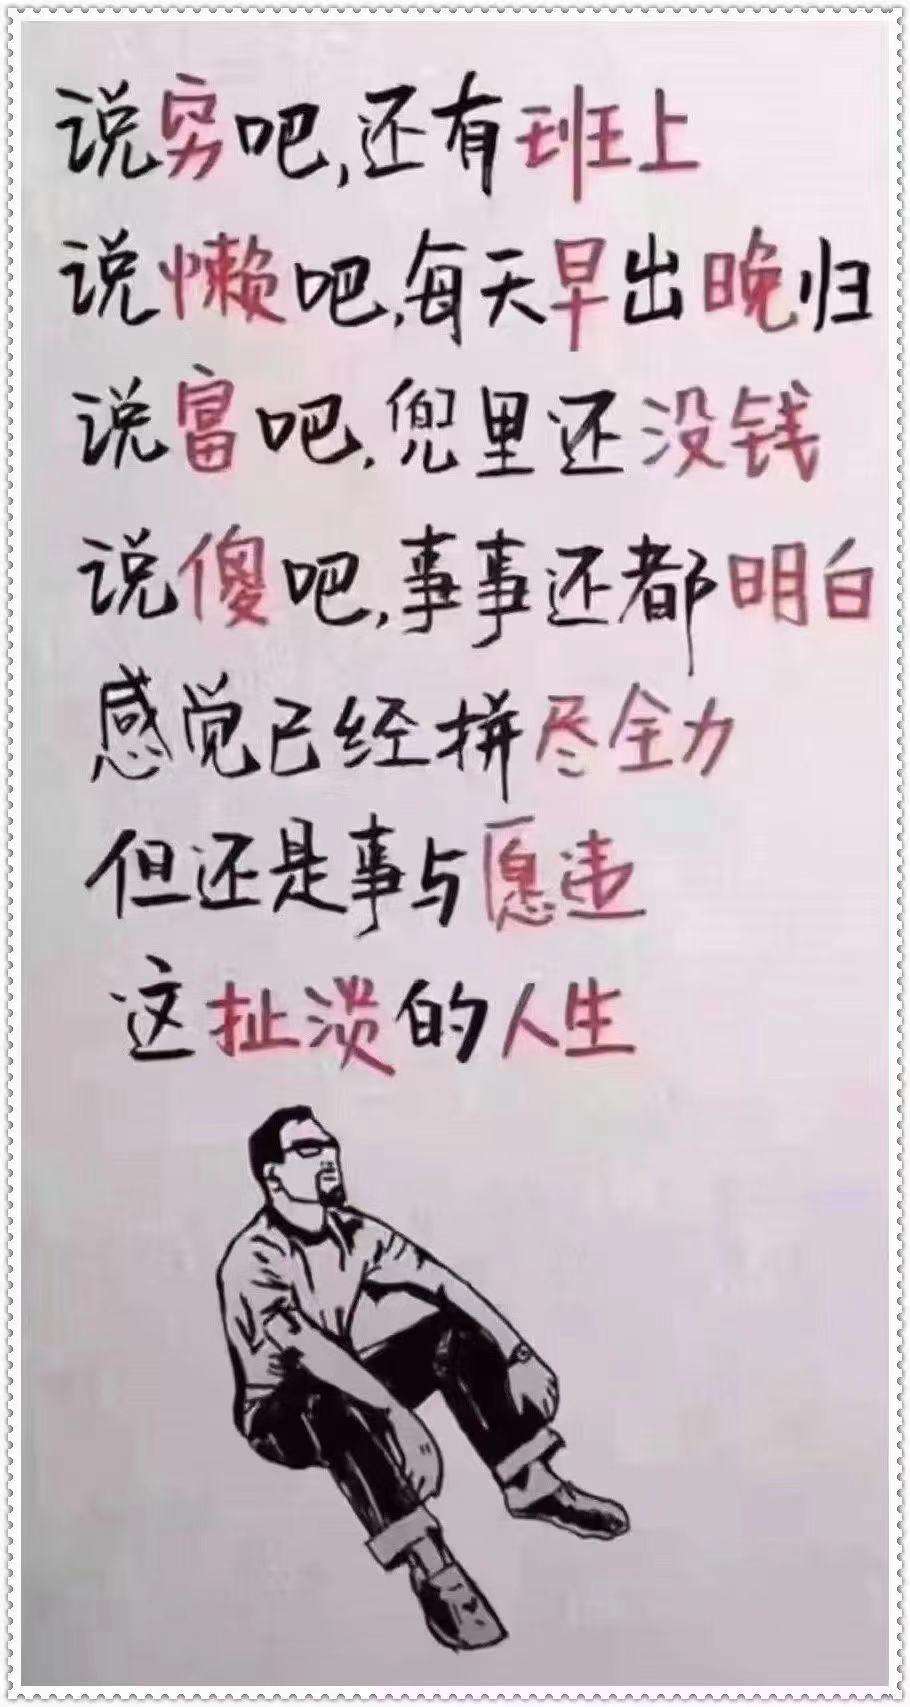 说穷吧,还有班上
说懒吧,每天早出晚归
说富吧,兜里还没钱
说傻吧,事事还都明白
感觉已经拼尽全力
但还是事与愿违
这扯淡的人生